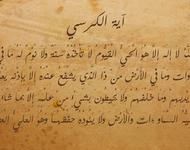 آية الكرسي
لا إله إلا هو الحي القيوم لا تأخذه سنة ولا نوم له ما في
وما في الأرض من ذا الذي يشفع عنده إلا بإذنه
وما خلفهم ولا يحيطون بشيء من علمه إلا بما شاء
السماوات والأرض ولا يئوده حفظهما وهو العلي